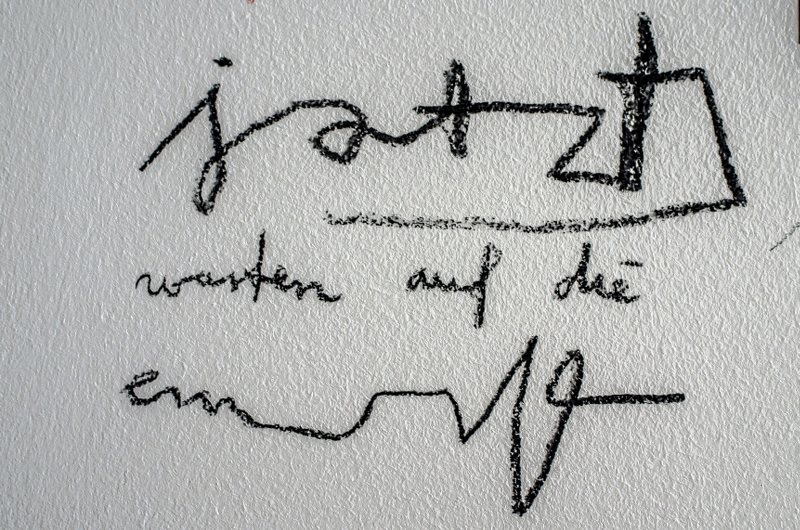 jetzt
warten auf die